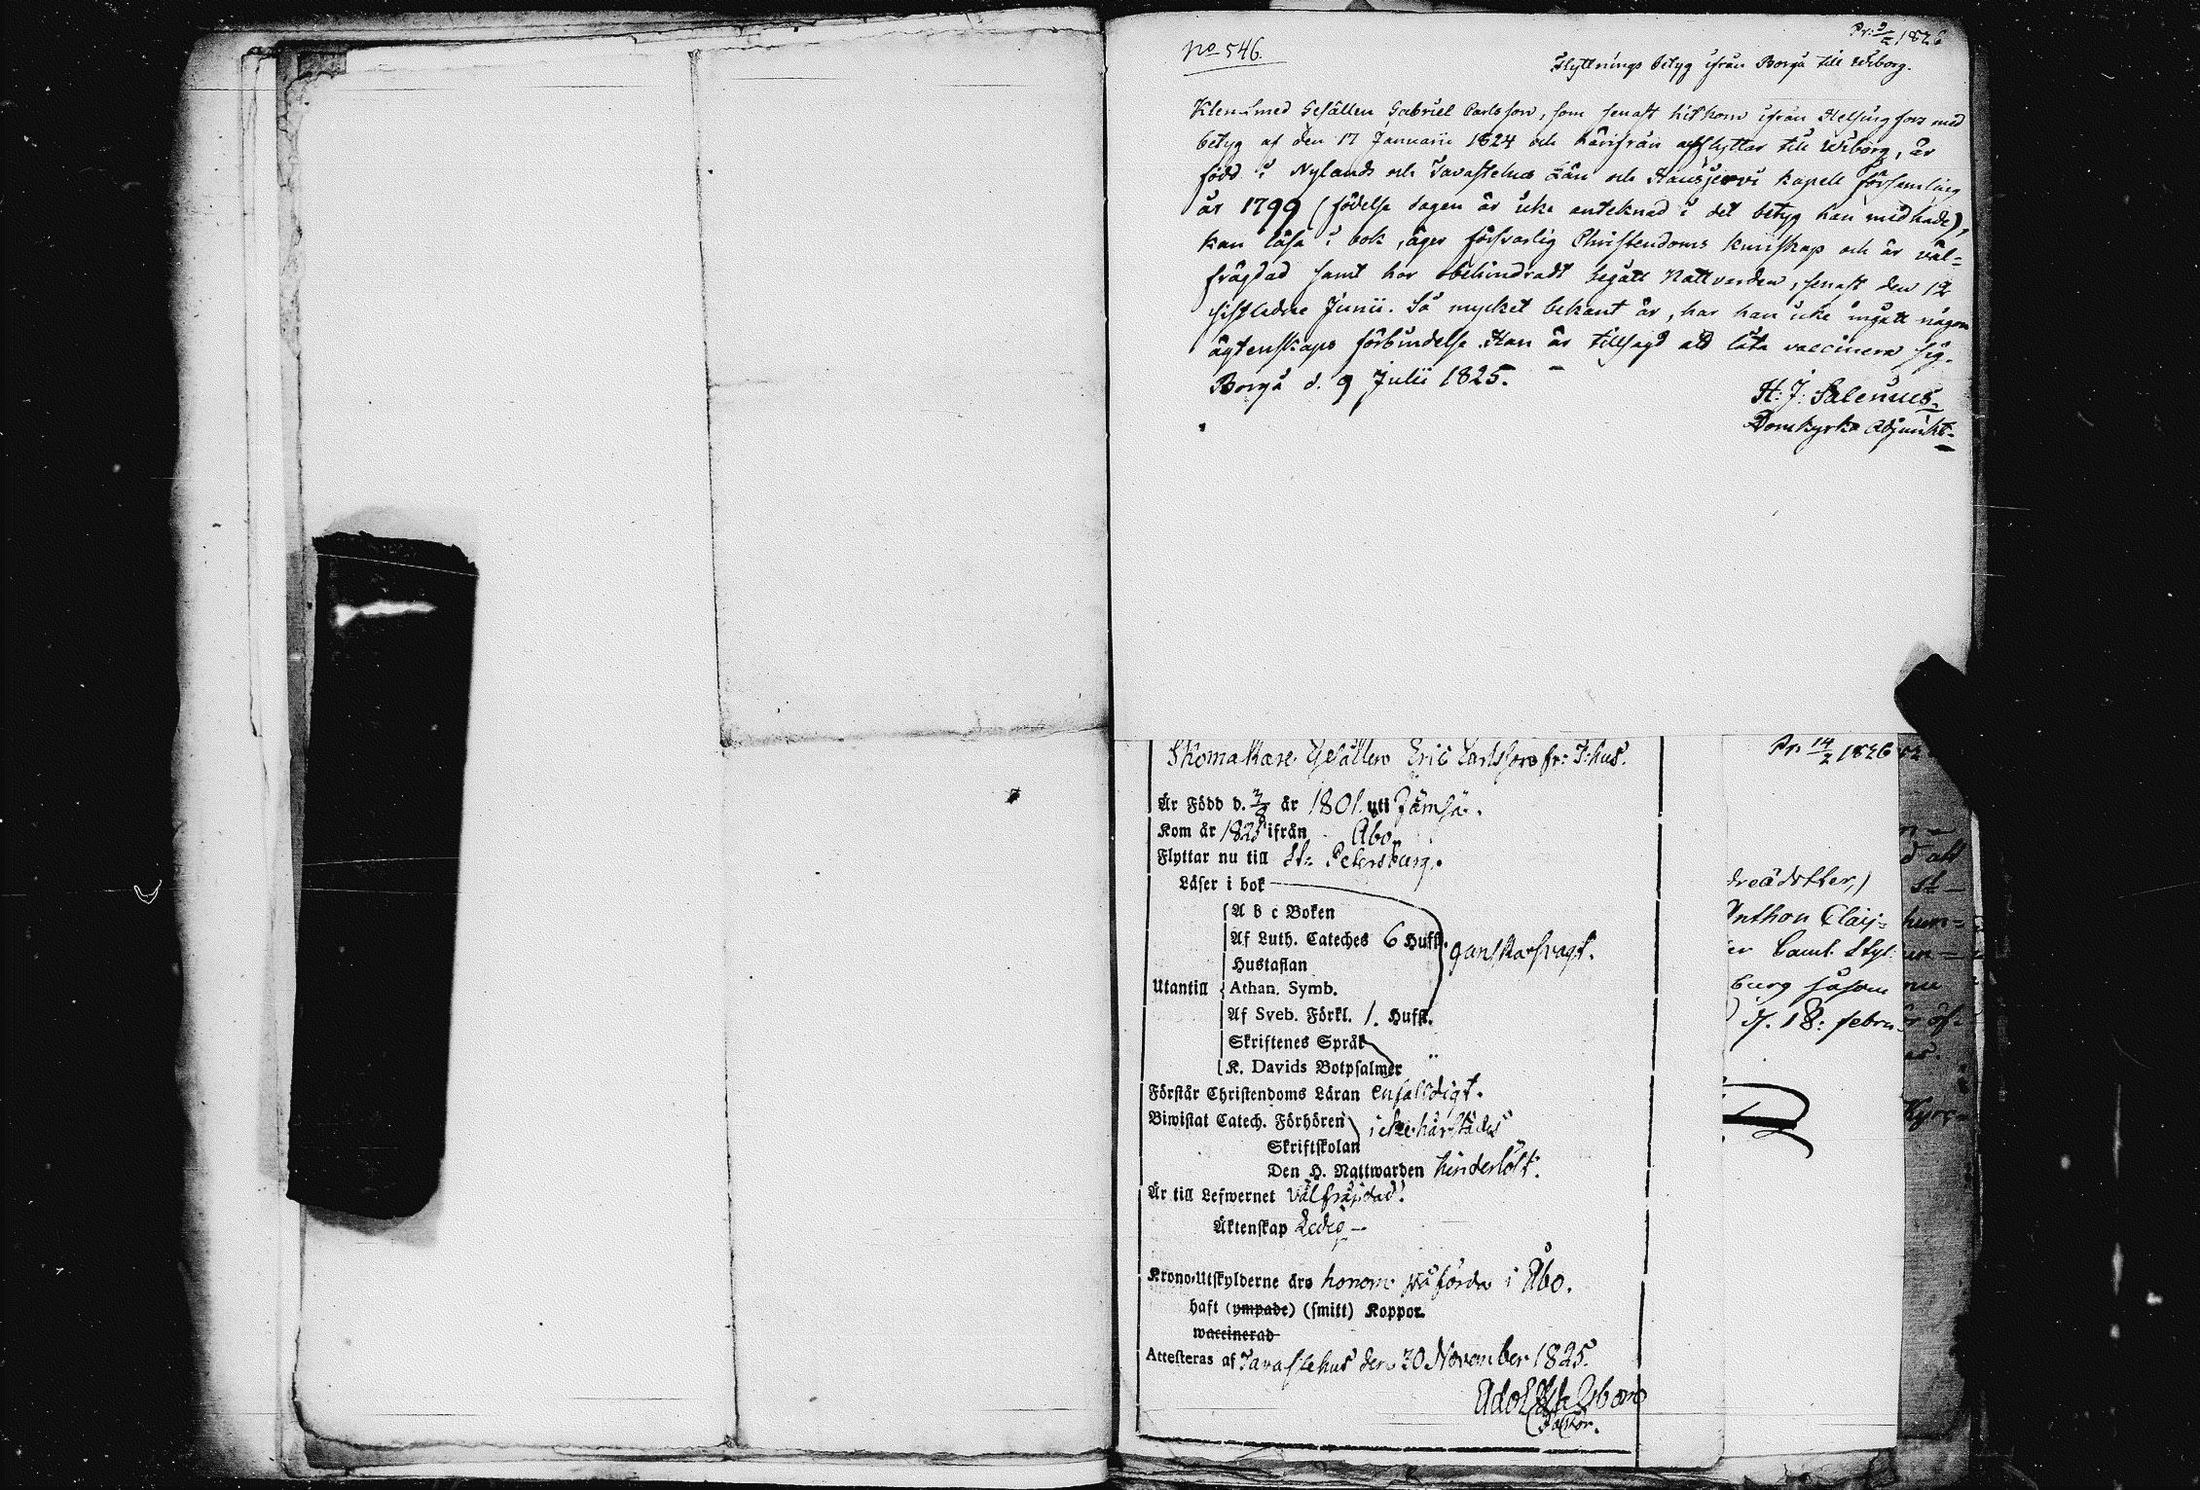 Pr: 2/2 1826
No 546.
Flyttnings betyg ifrån Borgå till Wiborg.
Klensmed Gesällen Gabriel Carlsson, som senast hitkom ifrån Helsingfors med
betyg af den 17 Januarii 1824 och härifrån afflyttar till Wiborg, är
född i Nylands och Tavastehus Län och Hausjervi kapell församling
år 1799 (födelse dagen är icke anteknad i det betyg han medhade),
kan läsa i bok, äger försvarlig Christendoms kunskap och är väl=
frägdad samt har obehindradt begått Nattvarden, senast den 12
sistledne Junii. Så mycket bekant är, har han icke ingått någon
ägtenskaps förbindelse. Han är tillsagd att låta vaccinera sig.
Borgå d. 9 Julii 1825. –
H: J: Salenius
Domkyrko Adjunkt.
Skomakare Gesällen Eric Carlsson fr: T:hus.
Är Född d. år 1801. uti Jämsä.
Kom år 1825 ifrån Åbo.
Flyttar nu till St: Petersburg.
Läser i bok
A b c Boken
Af Luth. Cateches 6 Hufst.
ganska svagt.
Hustaflan
Utantill Athan. Symb.
Af Sveb. Förkl. 1. Hufst.
Skriftenes Språk
K. Davids Botpsalmer
Förstår Christendoms Läran enfaldigt.
Biwistat Catech. Förhören icke härstädes
Skriftskolan
Den H. Nattwarden hinderlöst.
Är till Lefwernet välfrägdad.
Äktenskap Ledig –
Krono-Utskylderne äro honom påförda i Åbo.
haft (ympade) (smitt) Koppor.
waccinerad
Attesteras af Tavastehus den 30 November 1825.
Pr. 14/2 1826
dreädotter,)
Anthon Clay=
er Caml. Styl:
burg såsom
d. 18: febru